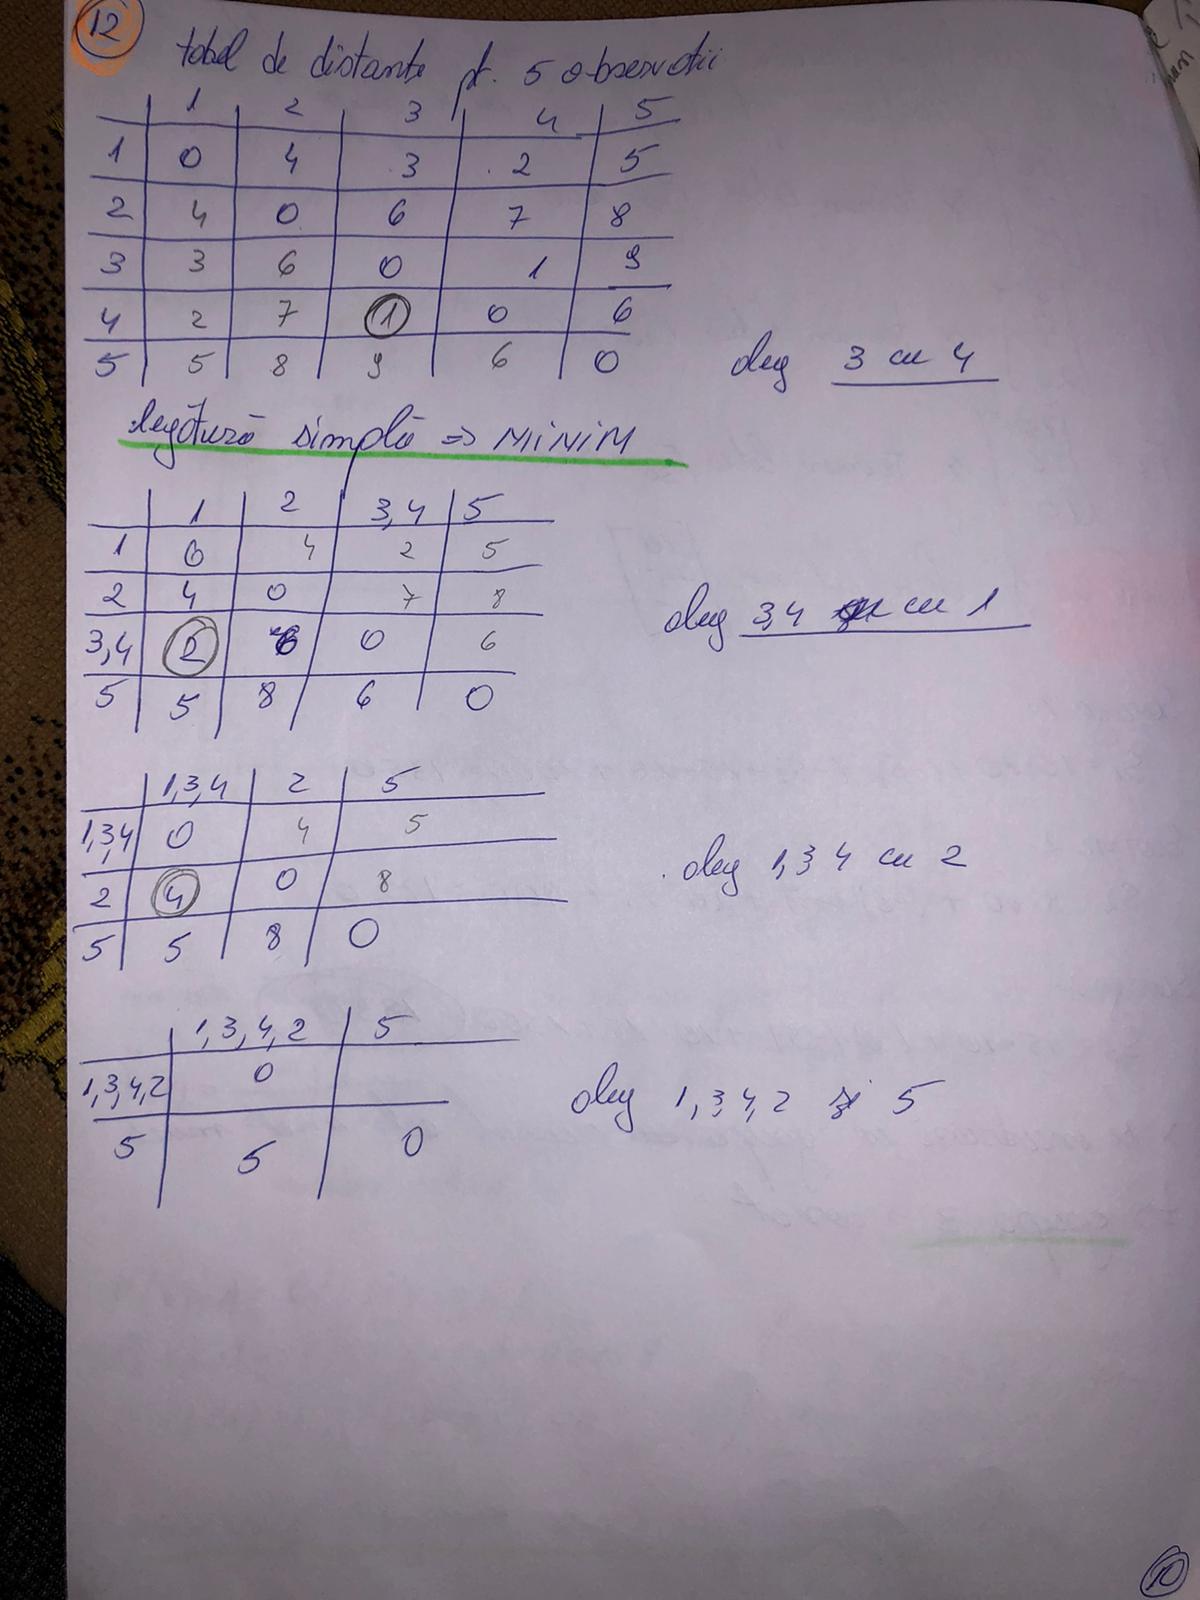 12
tabel de distante pt. 5 observatii
1 2 3 4 5
1 0 4 3 2 5
2 4 0 6 7 8
3 3 6 0 1 9
4 2 7 1 0 6
5 5 8 9 6 0
aleg 3 cu 4
legătură simplă => MINIM
1 2 3,4 5
1 0 4 2 5
2 4 0 7 8
3,4 2 6 0 6
5 5 8 6 0
aleg 3,4 cu 1
1,3,4 2 5
1,3,4 0 4 5
2 4 0 8
5 5 8 0
aleg 1,3 4 cu 2
1,3,4,2 5
1,3,4,2 0
5 5 0
aleg 1,3,4,2 și 5
10